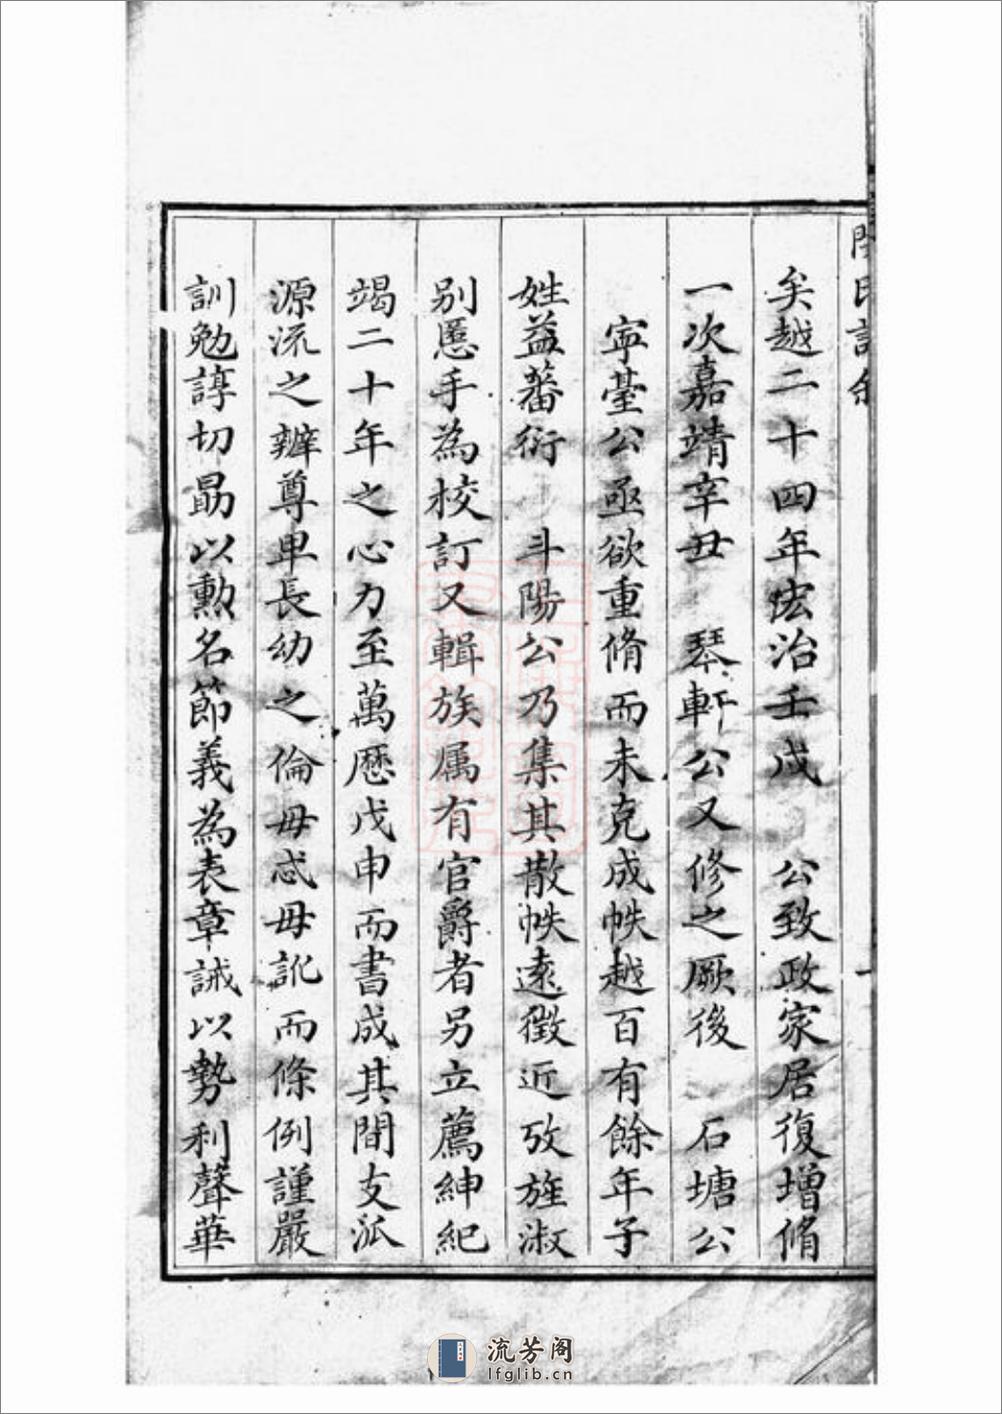 矣越二十四年宏治壬戌　公致政家居復增脩
一次嘉靖辛丑　琴軒公又修之厥後　石塘公
寧臺公亟欲重脩而未克成帙越百有餘年子
姓益蕃衍　斗陽公乃集其散帙遠徵近攷旌淑
别慝手為校訂又輯族属有官爵者另立薦紳紀
竭二十年之心力至萬厯戊申而書成其間支派
源流之辨尊卑長幼之倫毋忒毋訛而條例謹嚴
訓勉諄切勗以勲名節義為表章誡以勢利聲華
流芳阁
lfglib.cn